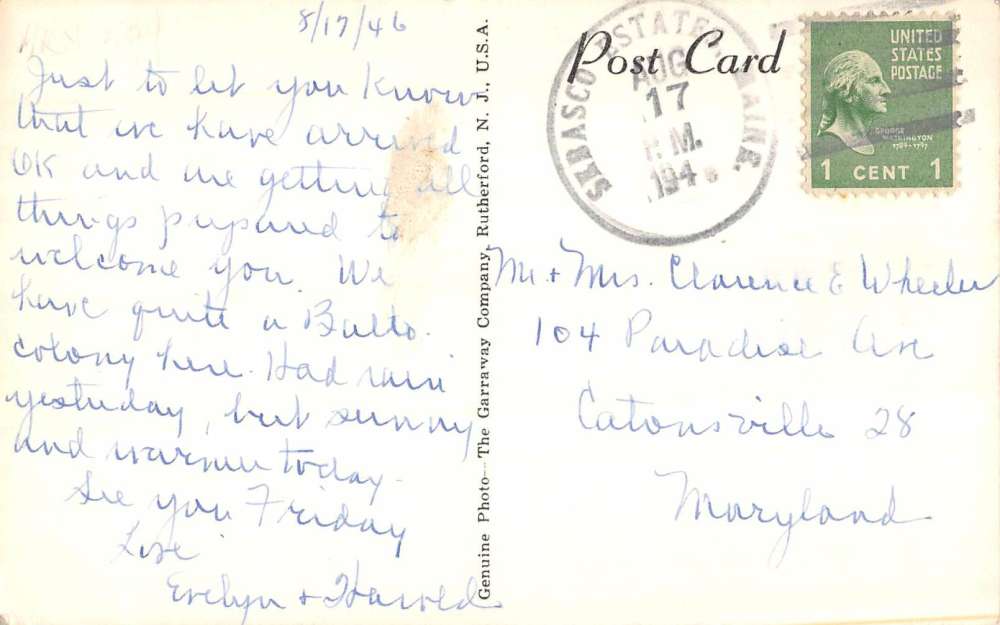 8/17/46
Just to let you know
that we have arrived
OK and are getting all
things prepared to
welcome you. We
have quite a Balto.
colony here. Had rain
yesterday, but sunny
and warmer today.
See you Friday
Love
Evelyn + Harold
Genuine Photo—The Garraway Company, Rutherford, N. J., U.S.A.
Post Card
SEBASCO ESTATES, MAINE
AUG
17
P.M.
194
UNITED
STATES
POSTAGE
GEORGE
WASHINGTON
1789-1797
1 CENT 1
Mr + Mrs. Clarence E Wheeler
104 Paradise Ave
Catonsville 28
Maryland